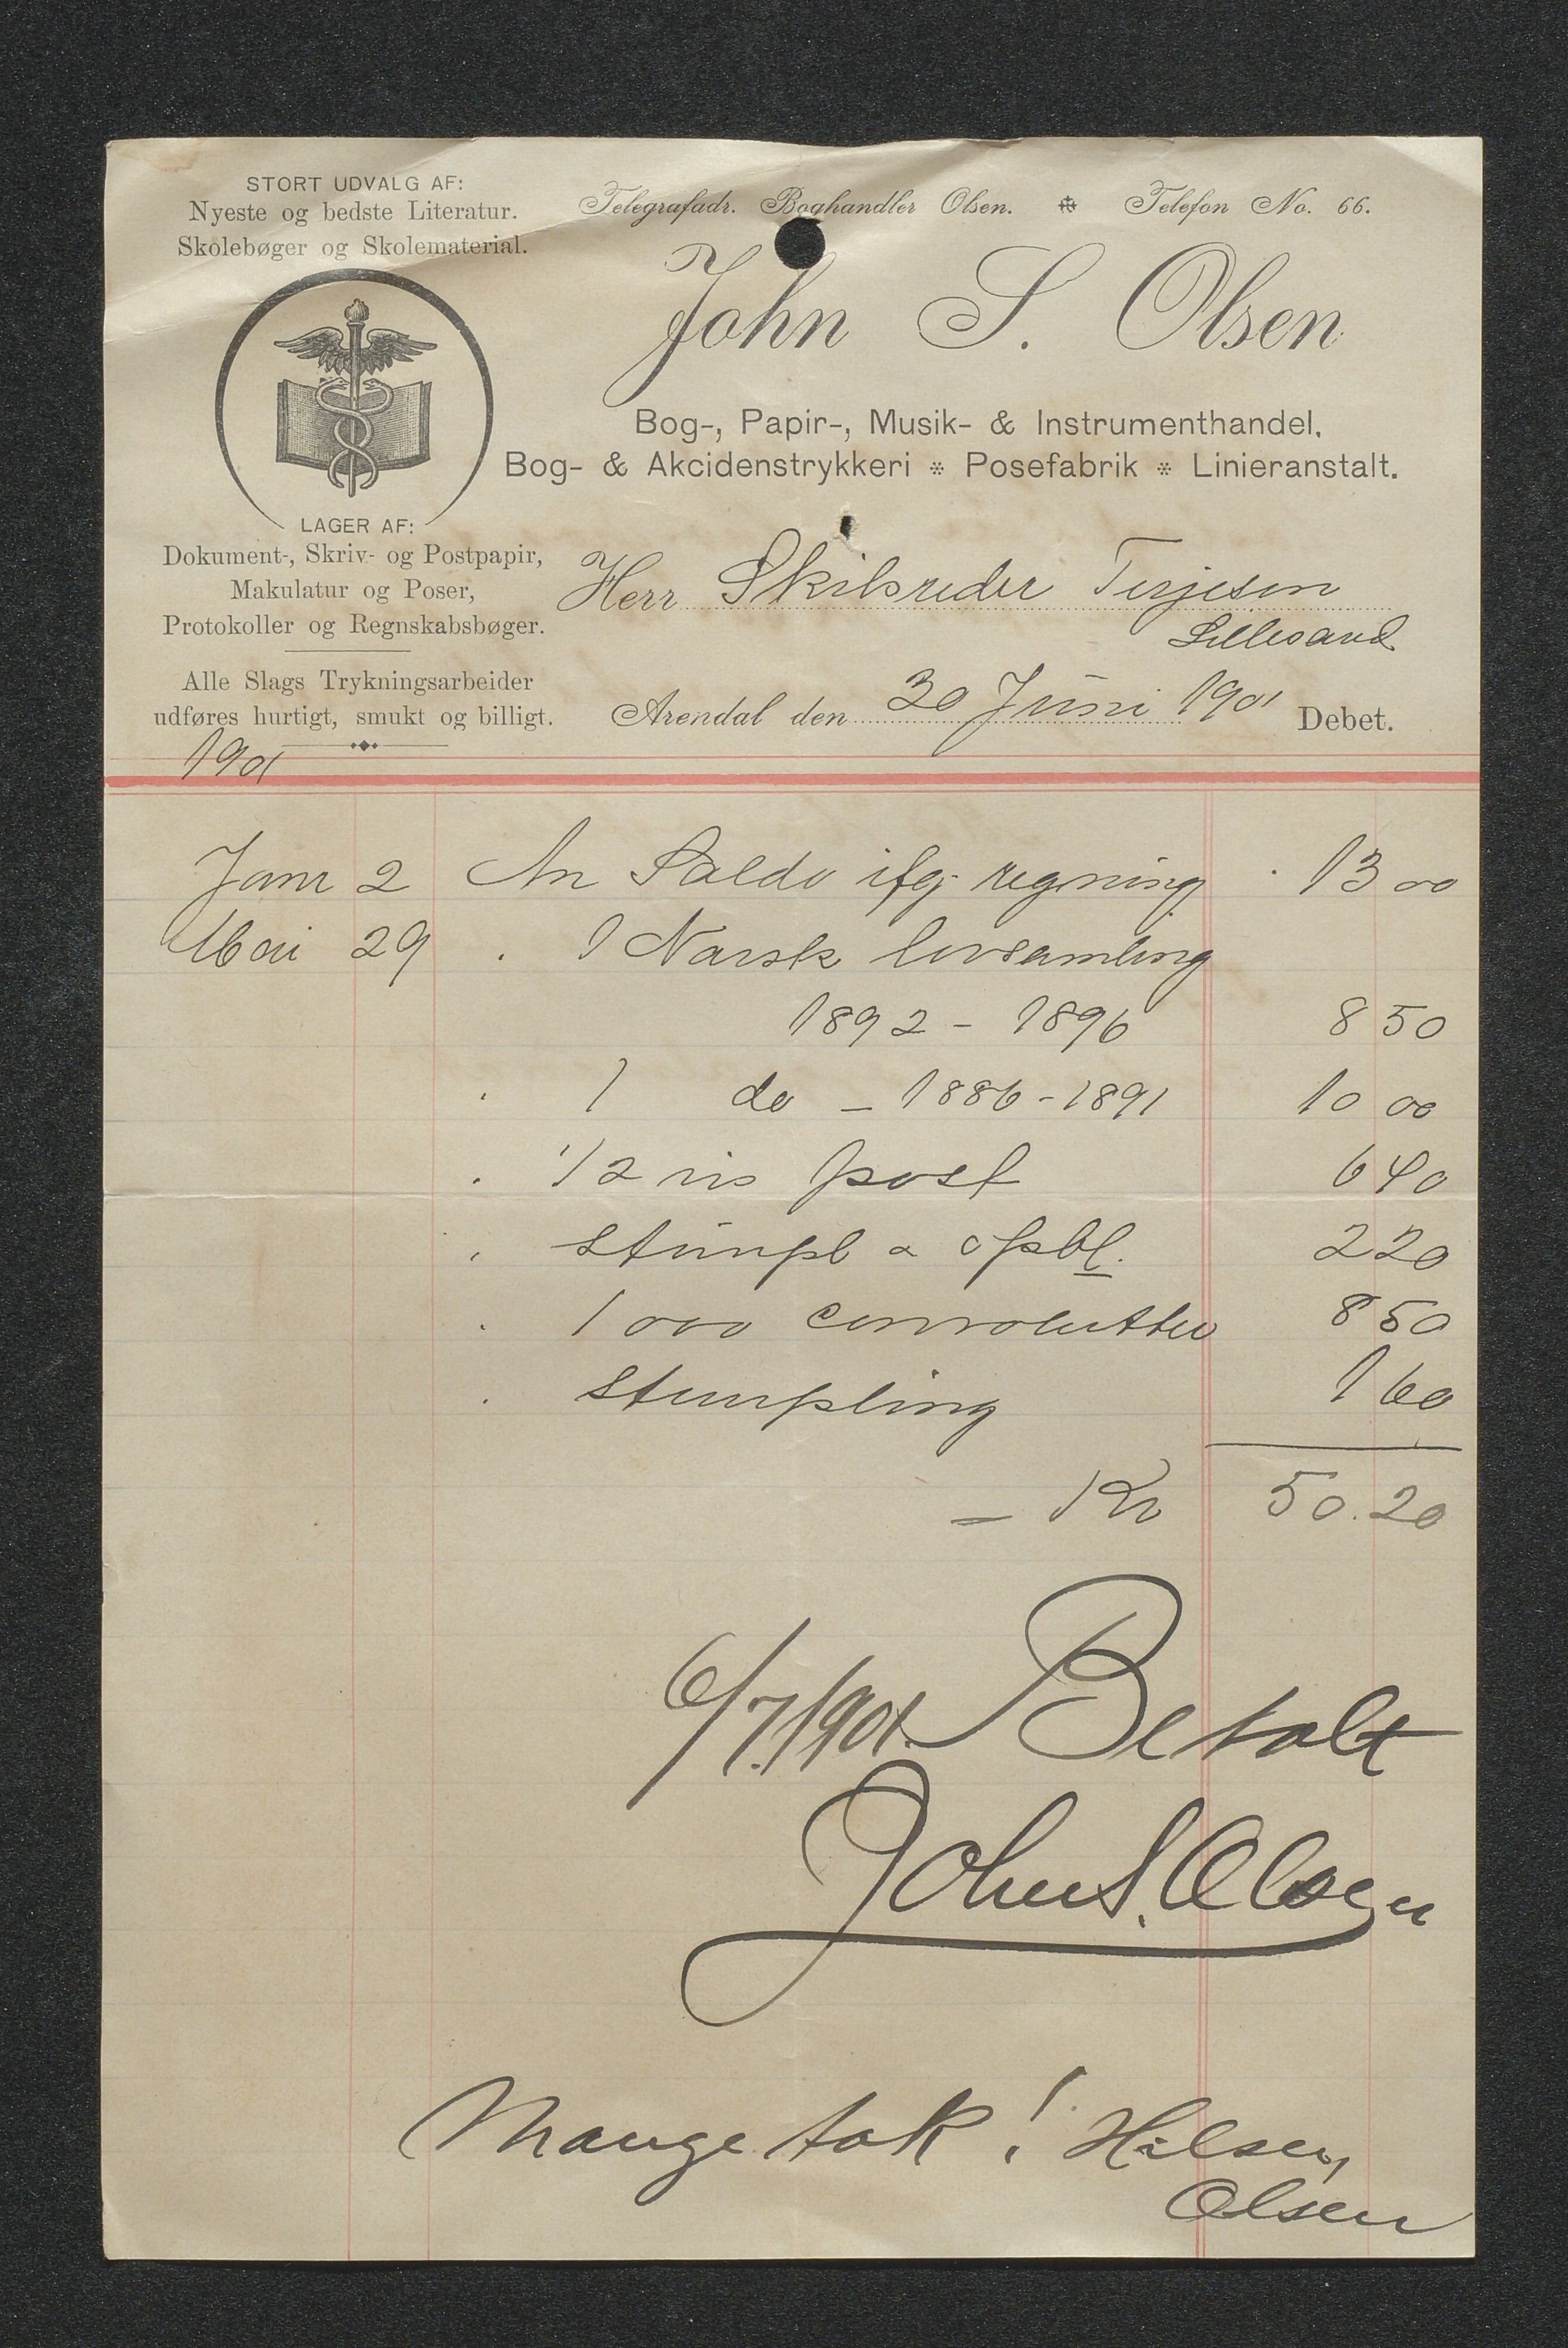 STORT UDVALG AF:
Nyeste og bedste Literatur.
Skolebøger og Skolematerial.
LAGER AF:
Dokument-, Skriv- og Postpapir,
Makulatur og Poser,
Protokoller og Regnskabsbøger.
Alle Slags Trykningsarbeider
udføres hurtigt, smukt og billigt.
Telegrafadr. Boghandler Olsen. Telefon No. 66.
John S. Olsen
Bog-, Papir-, Musik- & Instrumenthandel,
Bog- & Akcidenstrykkeri * Posefabrik * Linieranstalt.
Herr Skibsreder Terjesen
Lillesand
Arendal den 30 Juni 1901 Debet.
1901
Janr 2 An Saldo ifg regning 13 00
Mai 29 1 Norsk lovsamling
1892 - 1896 8 50
1 do - 1886 - 1891 10 00
1/2 ris post 6 40
stempl 2 20
1000 convolutter 8 50
stempling 1 60
- Kr 50.20
6/7.1901. Betalt
John S. Olsen
Mange tak! Hilsen,
Olsen